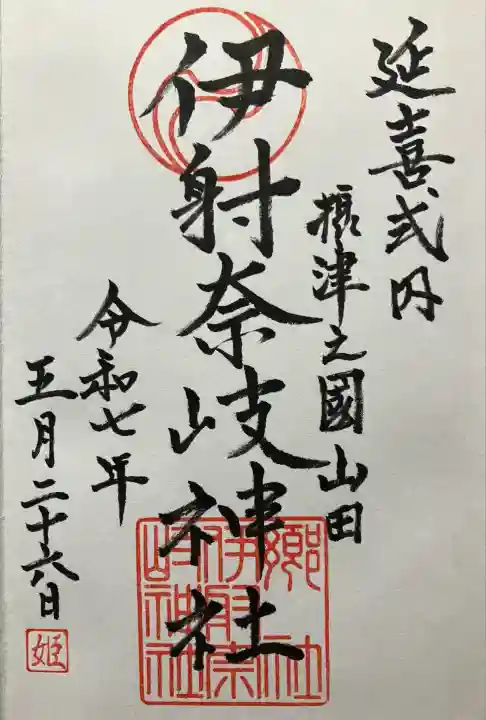 延喜式内
攝津之國山田
伊射奈岐神社
令和七年
五月二十六日
姫
郷社
伊射奈
岐神社